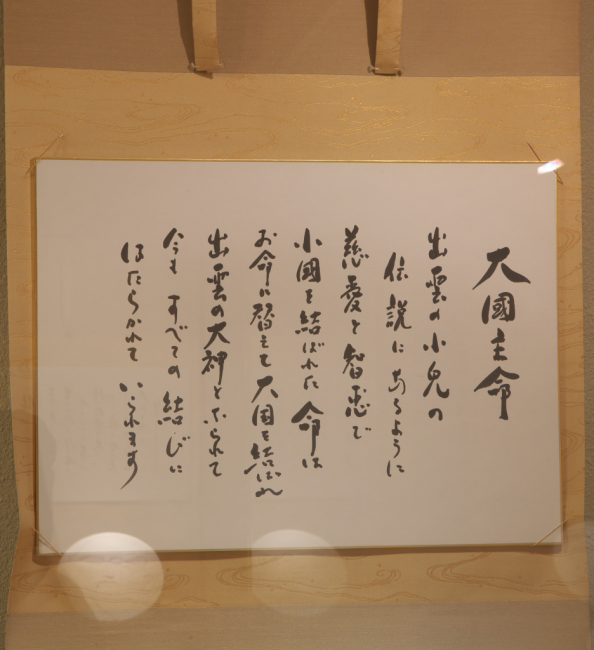 大國主命
出雲の小兎の
伝説にあるように
慈愛と智恵で
小國を結ばれた 命は
お命に替えて大国を結ばれ
出雲の大神となられて
今も すべての結びに
はたらかれて いられます